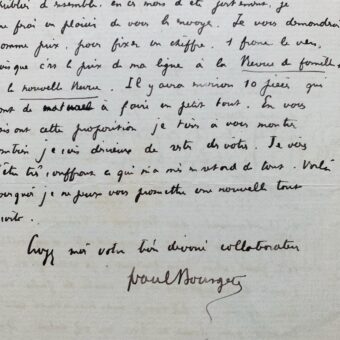 d'ensemble. en ces mois d'été justement, je
me ferai un plaisir de vous le envoyer. Je vous demanderai
comme prix, pour fixer un chiffre, 1 franc le vers,
puisque c'est le prix de ma ligne à la Revue de famille
la nouvelle Revue. Il y aura environ 10 pièces qui
ont de à faire un petit tout. En vous
cette proposition je tiens à vous montrer
combien je suis désireux de Je vous
très souffrant ce qui m'a mis en retard de tout. Voilà
pourquoi je ne peux vous promettre une nouvelle tout
suite.
Croyez moi votre bien dévoué collaborateur
Paul Bourget